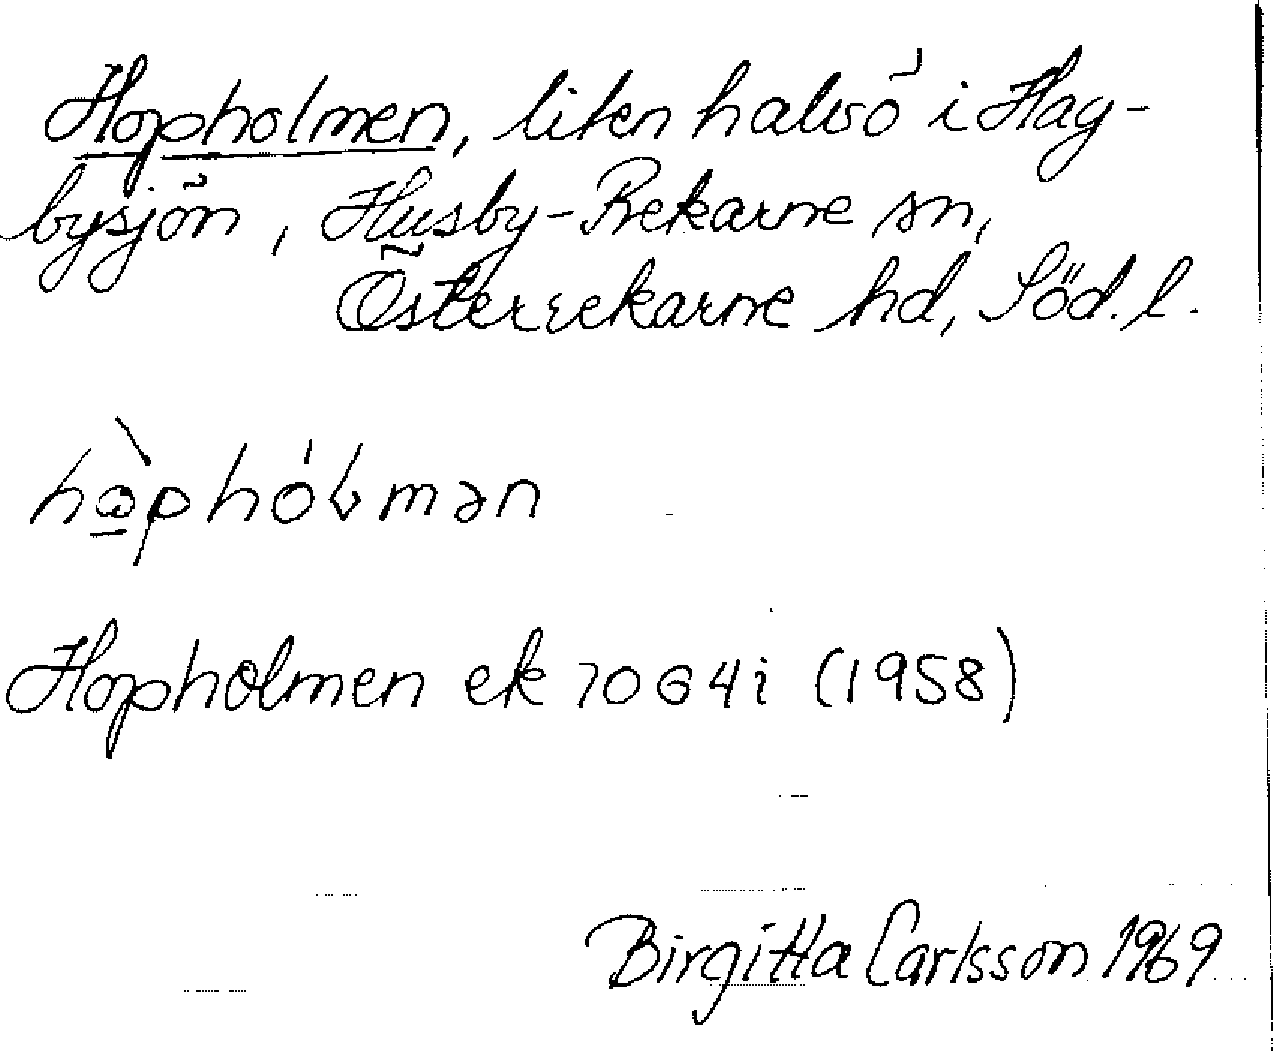 Hopholmen, liten halvö i Hag-
bysjön, Husby-Rekarne sn,
Österrekarne hd, Söd. l.
Hopholmen ek 10G4i (1958)
Birgitta Carlsson 1969